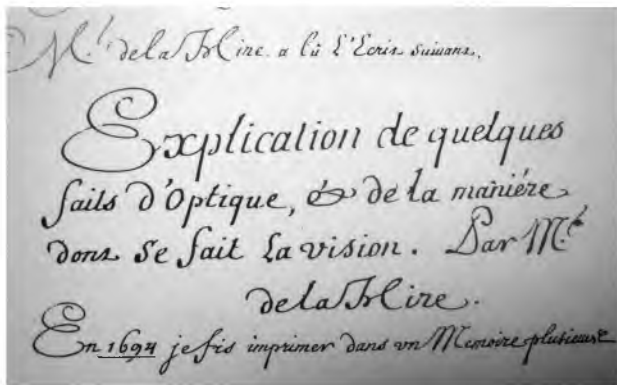 M.r de la Hire a lû l'Ecrit suivant.
Explication de quelques
faits d'Optique, & de la maniére
dont se fait la vision. Par M.r
de la Hire.
En 1694 je fis imprimer dans un Memoire plusieurs